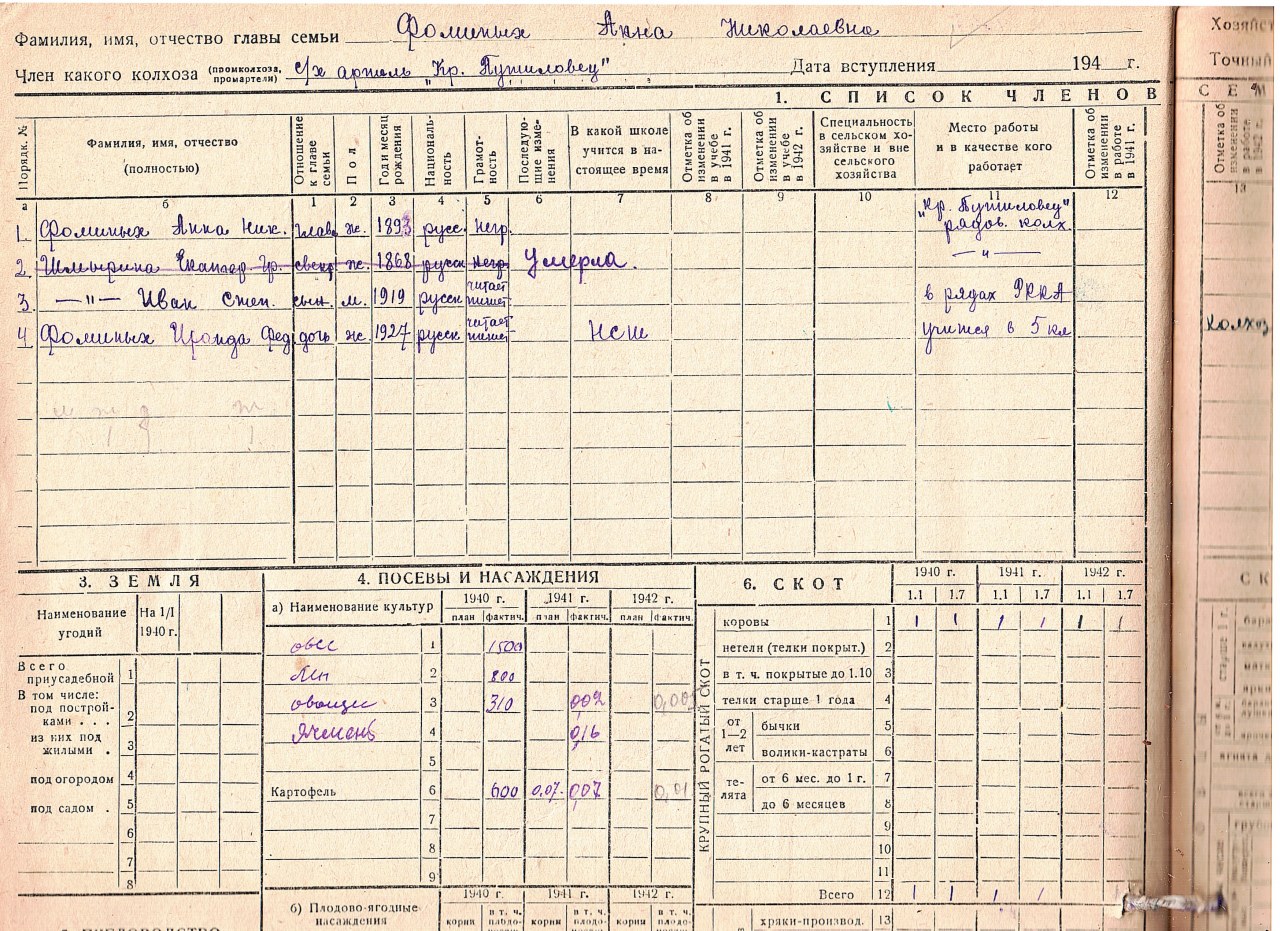 Фамилия, имя, отчество главы семьи Фоминых Анна Николаевна
Член какого колхоза (промколхоза, промартели) с/х артель „Кр. Путиловец" Дата вступления 194 г.
1. СПИСОК ЧЛЕНОВ
Порядк. № Фамилия, имя, отчество (полностью) Отношение к главе семьи Пол Год и месяц рождения Националь-ность Грамот-ность Последую-щие изме-нения В какой школе учится в на-стоящее время Отметка об изменении в учебе в 1941 г. Отметка об изменении в учебе в 1942 г. Специальность в сельском хо-зяйстве и вне сельского хозяйства Место работы и в качестве кого работает Отметка об изменении в работе в 1941 г.
а б 1 2 3 4 5 6 7 8 9 10 11 12
1. Фоминых Анна Ник. глав. ж. 1893 русс. негр. „Кр. Путиловец" рядов. колх.
2. Шмырина Екатер. Гр. свекр ж. 1868 русск негр. умерла. — „ —
3. — „ — Иван Степ. сын. м. 1919 русск читает пишет в рядах РККА
4. Фоминых Ираида Фед дочь ж 1927 русск читает пишет НСШ учится в 5 кл
3. ЗЕМЛЯ
Наименование угодий На 1/I 1940 г.
Всего приусадебной 1
В том числе: под построй-ками . . . 2
из них под жилыми . 3
под огородом 4
под садом . 5
6
7
8
4. ПОСЕВЫ И НАСАЖДЕНИЯ
а) Наименование культур 1940 г. 1941 г. 1942 г.
план фактич. план фактич. план фактич.
овес 1 1500
Лен 2 800
овощи 3 310 0,02
Ячмень 4 0,16
5
Картофель 6 600 0,07 0,07 0,01
7
8
9
б) Плодово-ягодные насаждения 1940 г. 1941 г. 1942 г.
корни в т. ч. плодо- корни в т. ч. плодо- корни в т. ч. плодо-
6. СКОТ 1940 г. 1941 г. 1942 г.
1.1 1.7 1.1 1.7 1.1 1.7
КРУПНЫЙ РОГАТЫЙ СКОТ
коровы 1 1 1 1 1 1 1
нетели (телки покрыт.) 2
в т. ч. покрытые до 1.10 3
телки старше 1 года 4
от 1—2 лет бычки 5
волики-кастраты 6
те-лята от 6 мес. до 1 г. 7
до 6 месяцев 8
9
10
11
Всего 12 1 1 1 1 1 1
хряки-производ. 13
Хозяйст
Точный
СЕМ
Отметка об изменении в работе в 1942 г.
13
колхоз
СК